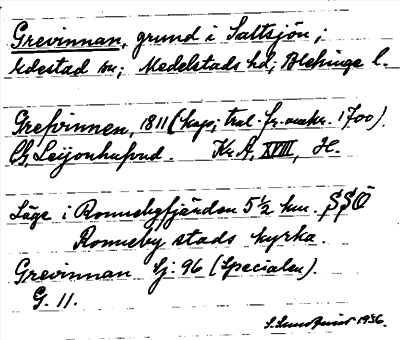 Grevinnan, grund i Saltsjön;
Edestad sn; Medelstads hd; Blekinge l.
Grefvinnen, 1811 (kop; tral. fr. omkr. 1700).
C. G. Leijonhufvud. Kr. A, XVIII, H.
Läge i Ronnebyfjärden 5 ½ km. SSÖ
Ronneby stads kyrka.
Grevinnan Sj. 96 (Specialen).
G. 11.
1936.